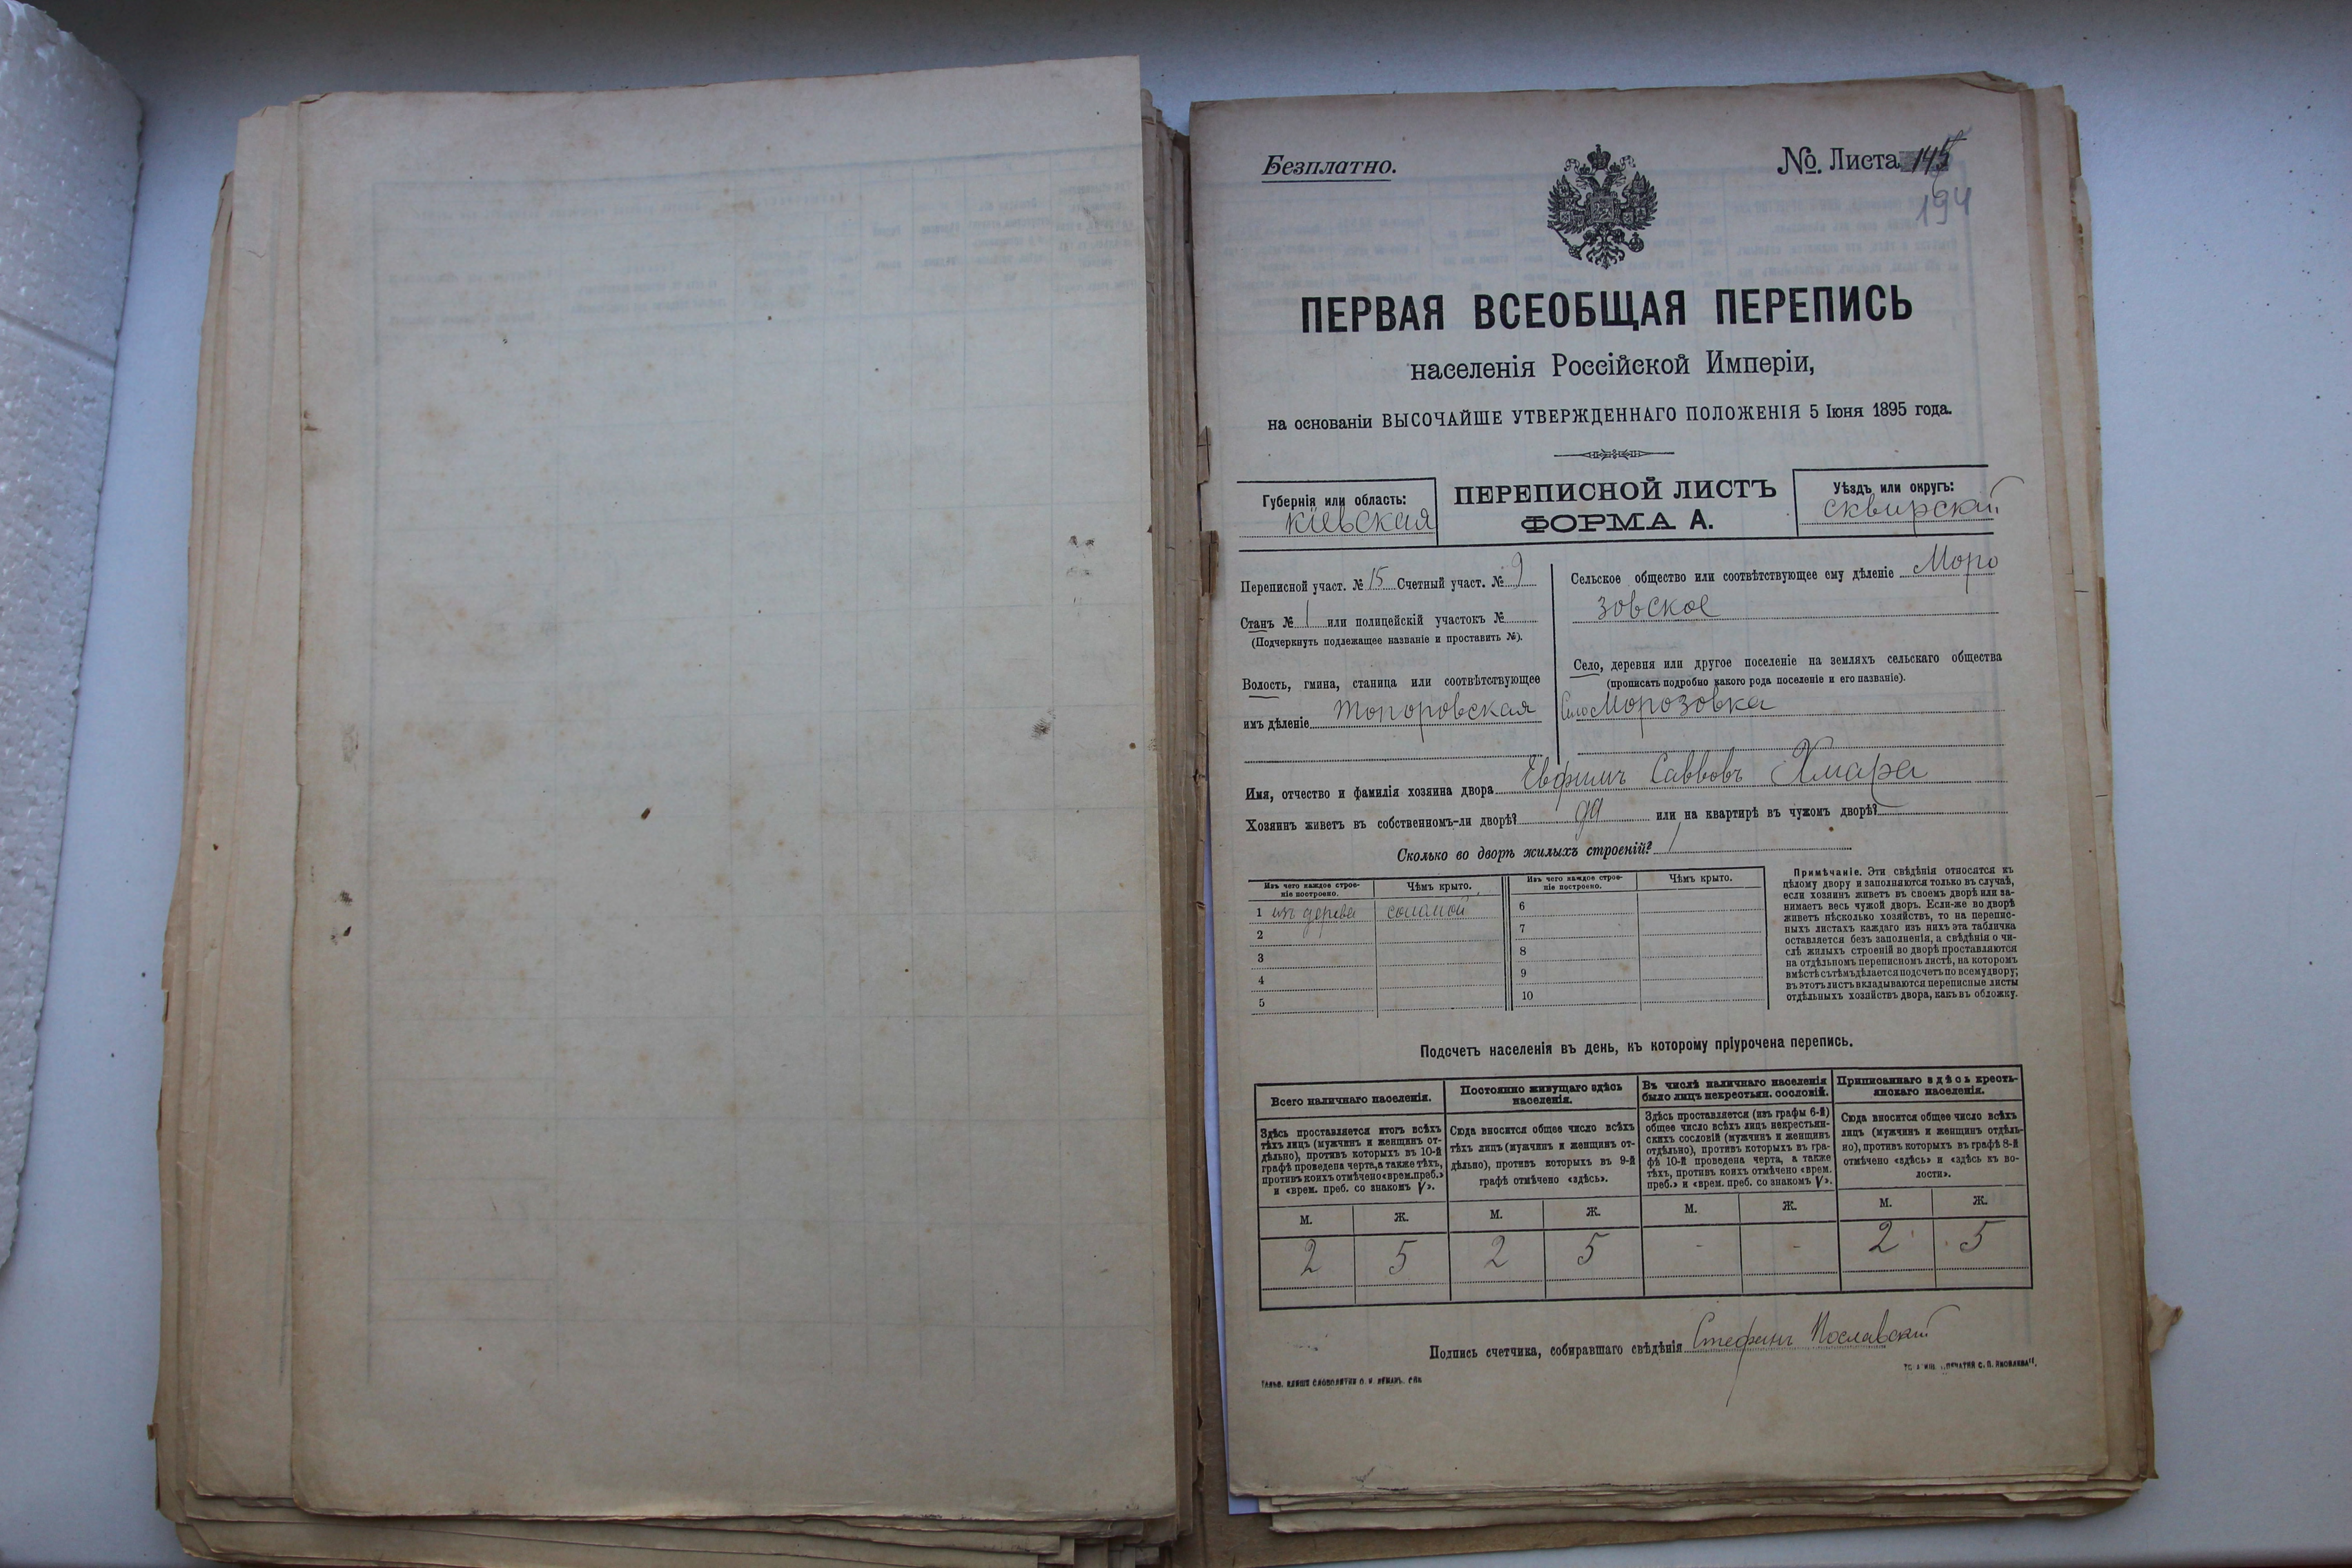 Безплатно.
№. Листа 145
194
ПЕРВАЯ ВСЕОБЩАЯ ПЕРЕПИСЬ
населенія Россійской Имперіи,
на основаніи ВЫСОЧАЙШЕ УТВЕРЖДЕННАГО ПОЛОЖЕНІЯ 5 Іюня 1895 года.
Губернія или область:
Кіевская
ПЕРЕПИСНОЙ ЛИСТЪ
ФОРМА А.
Уѣздъ или округъ:
сквирскій
Переписной участ. № 15 Счетный участ. № 9
Станъ № 1 или полицейскій участокъ №
(Подчеркнуть подлежащее названіе и проставить №).
Волость, гмина, станица или соотвѣтствующее
имъ дѣленіе топоровская
Сельское общество или соотвѣтствующее ему дѣленіе Моро
зовское
Село, деревня или другое поселеніе на земляхъ сельскаго общества
(прописать подробно какого рода поселеніе и его названіе).
Село Морозовка
Имя, отчество и фамилія хозяина двора Евфимъ Саввовъ Хмара
Хозяинъ живетъ въ собственномъ-ли дворѣ? да или на квартирѣ въ чужомъ дворѣ?
Сколько во дворѣ жилыхъ строеній? 1
Изъ чего каждое строе-
ніе построено.
Чѣмъ крыто.
Изъ чего каждое строе-
ніе построено.
Чѣмъ крыто.
1 изъ дерева соломой
2
3
4
5
6
7
8
9
10
Примѣчаніе. Эти свѣдѣнія относятся къ
цѣлому двору и заполняются только въ случаѣ,
если хозяинъ живетъ въ своемъ дворѣ или за-
нимаетъ весь чужой дворъ. Если-же во дворѣ
живетъ нѣсколько хозяйствъ, то на перепис-
ныхъ листахъ каждаго изъ нихъ эта табличка
оставляется безъ заполненія, а свѣдѣнія о чи-
слѣ жилыхъ строеній во дворѣ проставляются
на отдѣльномъ переписномъ листѣ, на которомъ
вмѣстѣ съ тѣмъ дѣлается подсчетъ по всему двору;
въ этотъ листъ вкладываются переписные листы
отдѣльныхъ хозяйствъ двора, какъ въ обложку.
Подсчетъ населенія въ день, къ которому пріурочена перепись.
Всего наличнаго населенія.
Здѣсь проставляется итогъ всѣхъ
тѣхъ лицъ (мужчинъ и женщинъ от-
дѣльно), противъ которыхъ въ 10-й
графѣ проведена черта, а также тѣхъ,
противъ коихъ отмѣчено «врем. преб.»
и «врем. преб. со знакомъ V».
Постоянно живущаго здѣсь
населенія.
Сюда вносится общее число всѣхъ
тѣхъ лицъ (мужчинъ и женщинъ от-
дѣльно), противъ которыхъ въ 9-й
графѣ отмѣчено «здѣсь».
Въ числѣ наличнаго населенія
было лицъ некрестьян. сословій.
Здѣсь проставляется (изъ графы 6-й)
общее число всѣхъ лицъ некрестьян-
скихъ сословій (мужчинъ и женщинъ
отдѣльно), противъ которыхъ въ гра-
фѣ 10-й проведена черта, а также
тѣхъ, противъ коихъ отмѣчено «врем.
преб.» и «врем. преб. со знакомъ V».
Приписаннаго здѣсь кресть-
янскаго населенія.
Сюда вносится общее число всѣхъ
лицъ (мужчинъ и женщинъ отдѣль-
но), противъ которыхъ въ графѣ 8-й
отмѣчено «здѣсь» и «здѣсь въ во-
лости».
М. Ж. М. Ж. М. Ж. М. Ж.
2 5 2 5 - - 2 5
Подпись счетчика, собиравшаго свѣдѣнія Стефанъ Пославскій